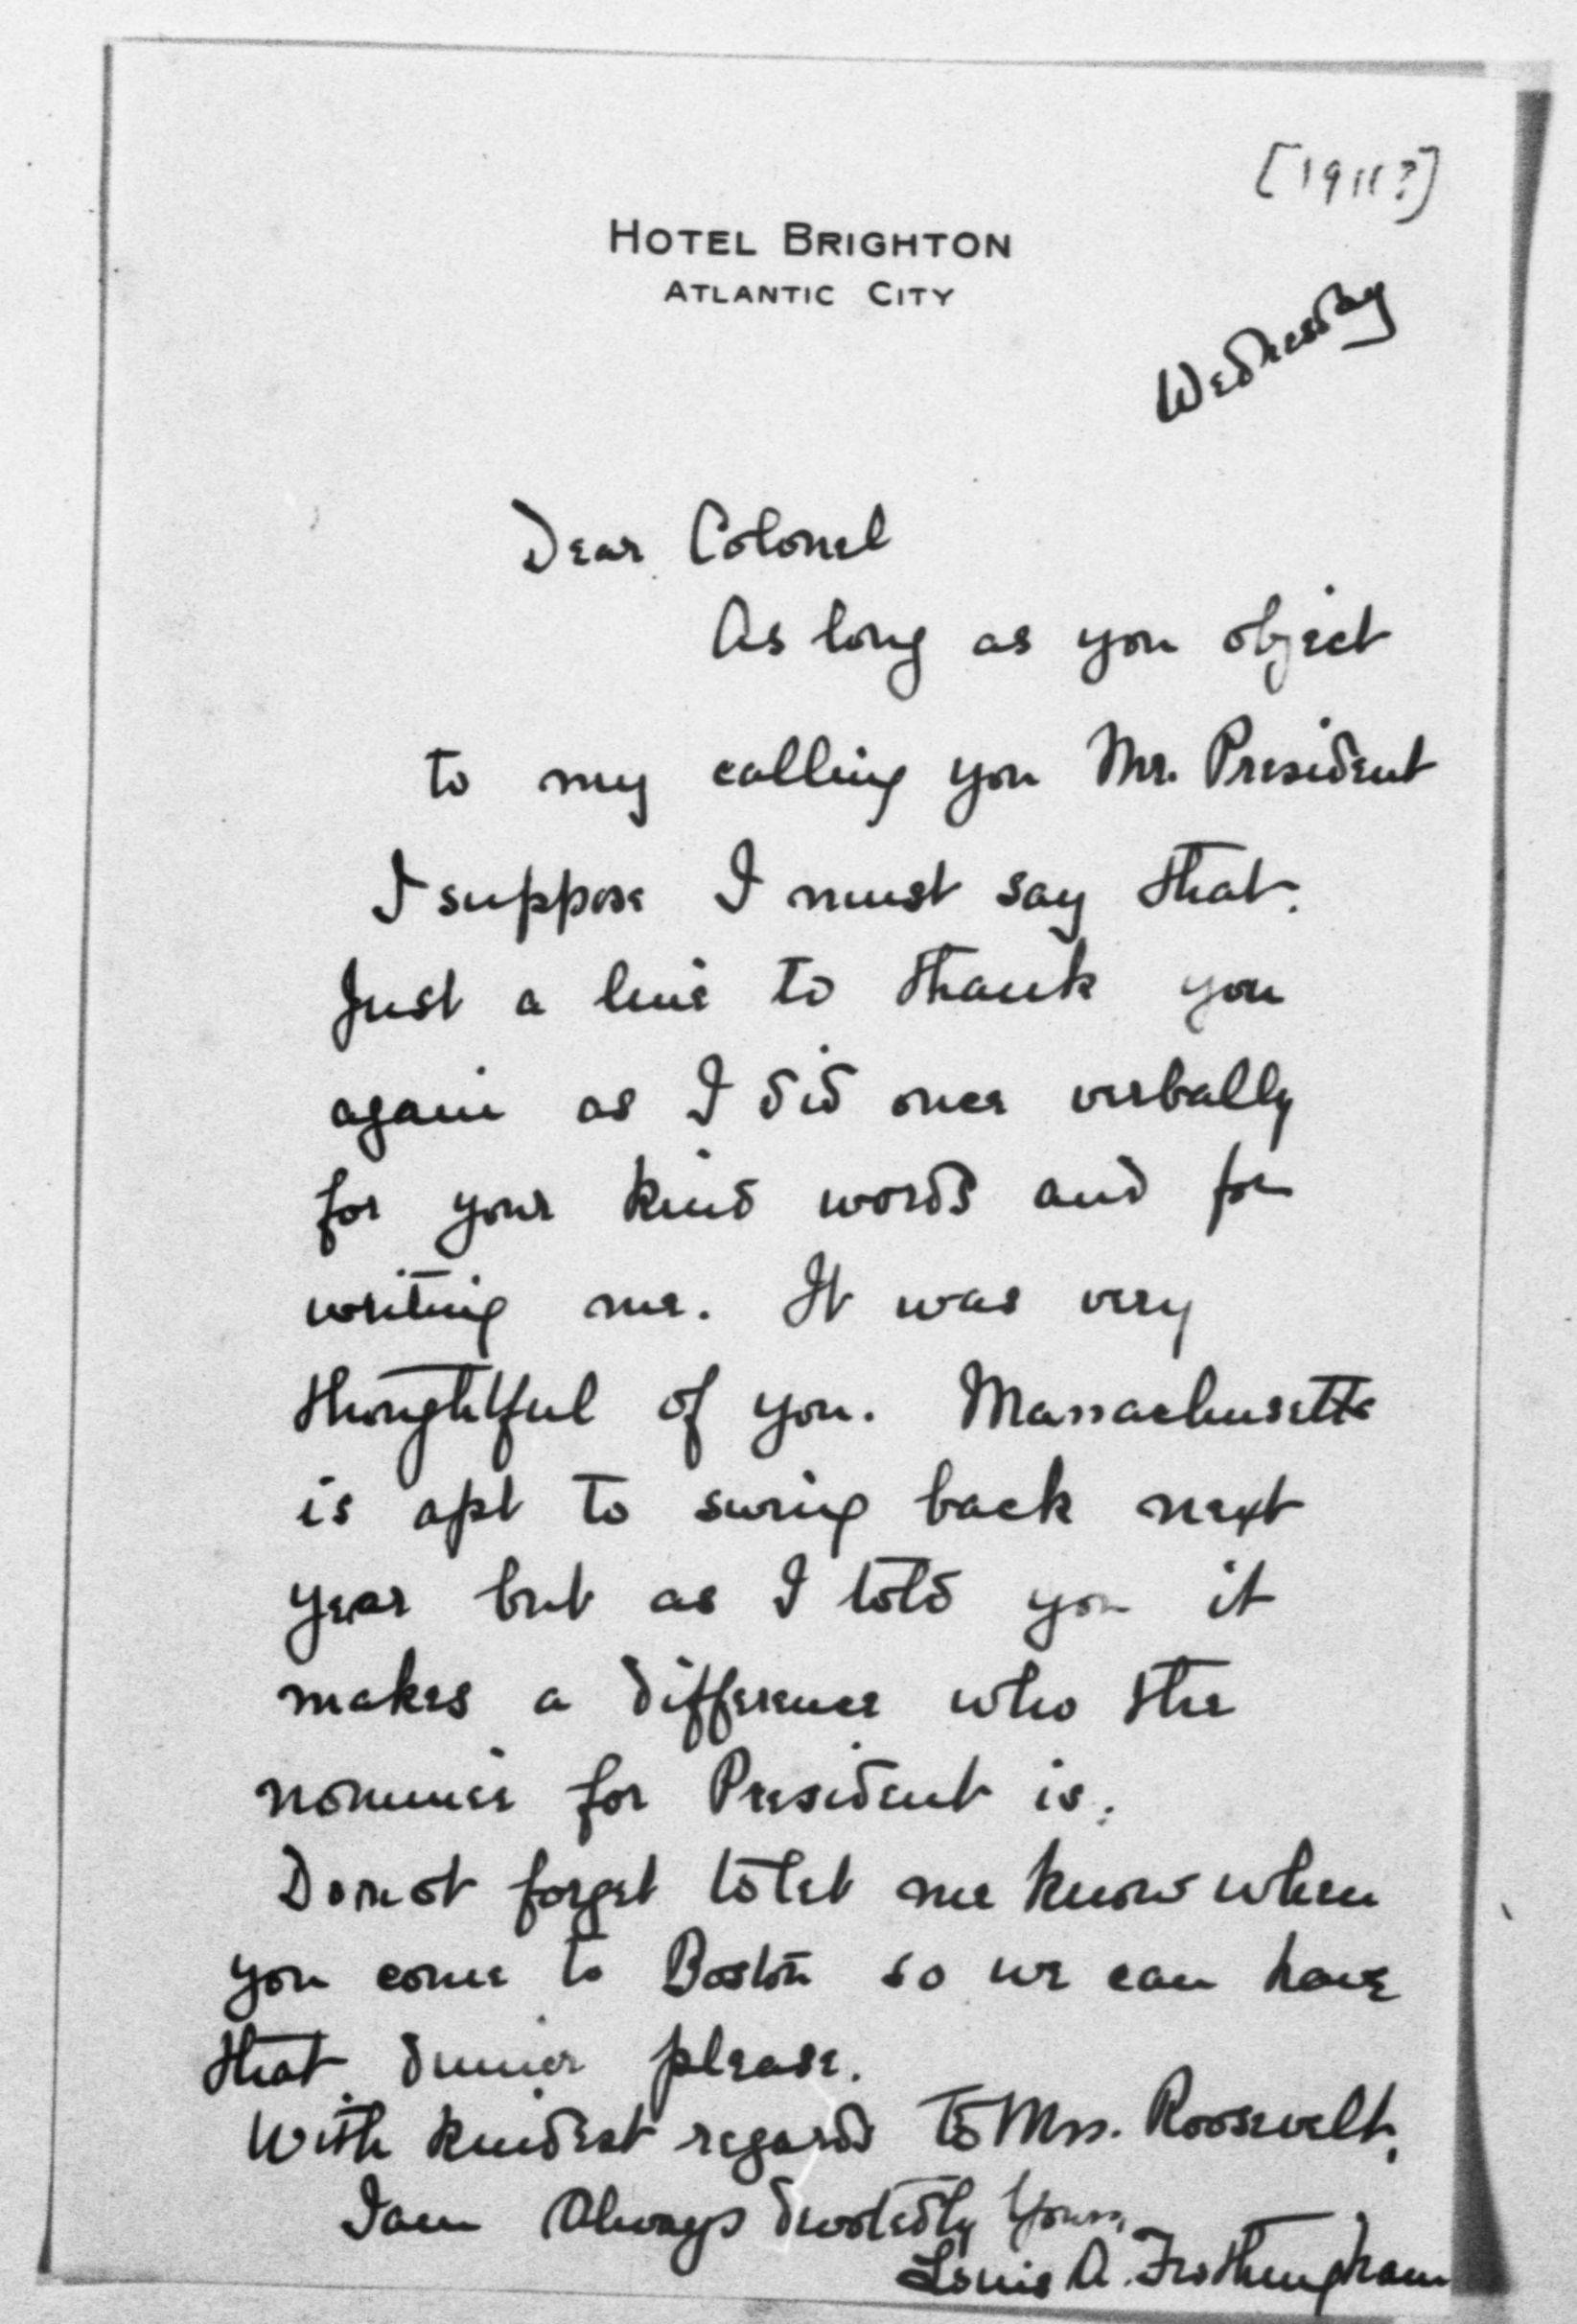 [1911?]
HOTEL BRIGHTON
ATLANTIC CITY
Wednesday
Dear Colonel
As long as you object
to my calling you Mr. President
I suppose I must say that.
Just a line to thank you
again as I did once verbally
for your kind words and for
writing me. It was very
thoughtful of you. Massachusetts
is apt to swing back next
year but as I told you it
makes a difference who the
nominee for President is.
Do not forget to let me know when
you come to Boston so we can have
that dinner please.
With kindest regards to Mrs. Roosevelt,
I am Always devotedly Yours,
Louis A. Frothingham